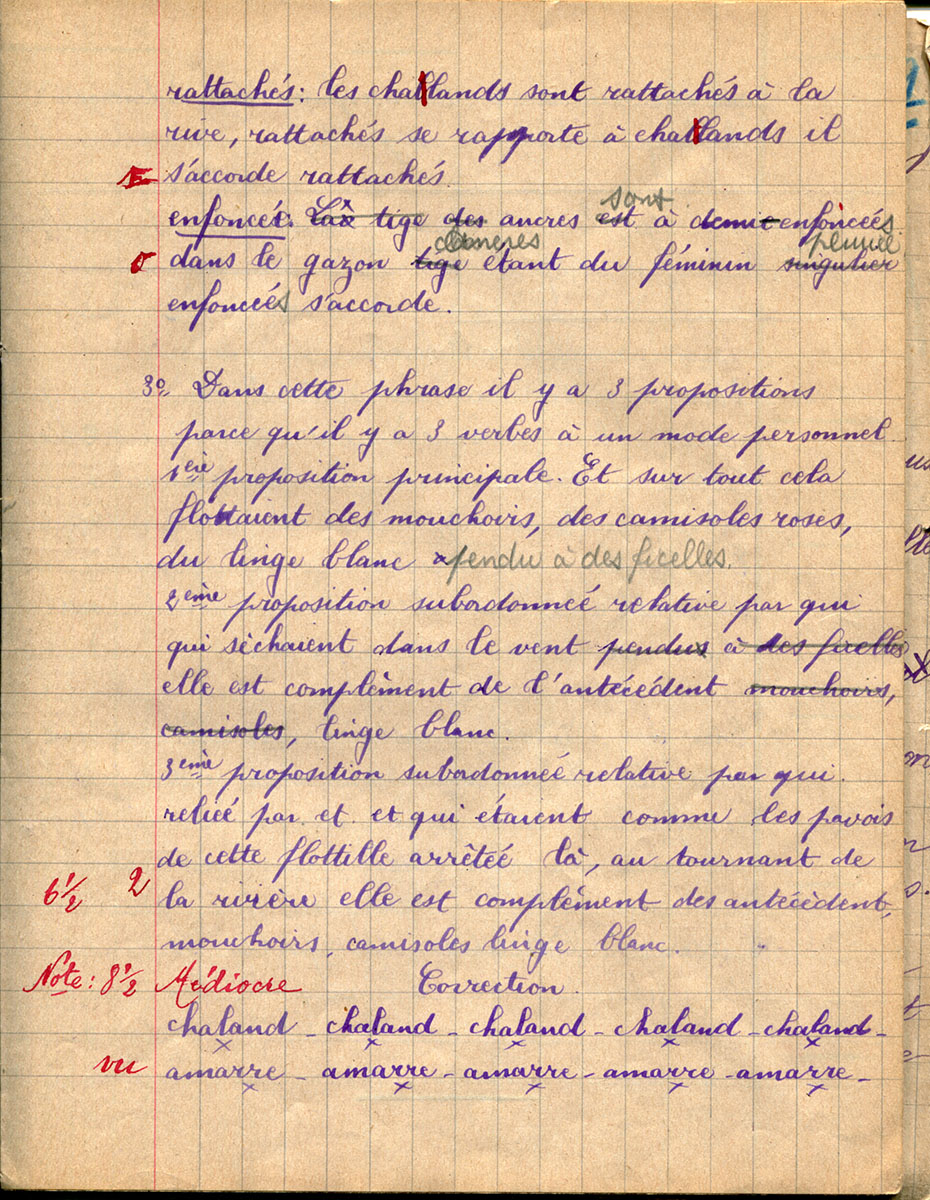 rattachés: les challands sont rattachés à la
rive, rattachés se rapporte à challands il
s'accorde rattachés.
sont
enfoncés: La tige des ancres est à demie enfoncées
ancres pluriel
0 dans le gazon tige étant du féminin singulier
enfoncées s'accorde.
3º Dans cette phrase il y a 3 propositions
parce qu'il y a 3 verbes à un mode personnel.
1ère proposition principale. Et sur tout cela
flottaient des mouchoirs, des camisoles roses,
du linge blanc pendu à des ficelles.
2ème proposition subordonnée relative par qui
qui sèchaient dans le vent pendus à des ficelles
elle est complèment de l'antécédent mouchoirs,
camisoles, linge blanc.
3ème proposition subordonnée relative par qui.
reliée par et. et qui étaient comme les pavois
de cette flottille arrêtée là, au tournant de
6 1/2 2 la rivière elle est complèment des antècèdent,
mouchoirs, camisoles linge blanc.
Note: 8 1/2 Médiocre Correction.
chaland - chaland - chaland - chaland - chaland -
vu amarre - amarre - amarre - amarre - amarre -